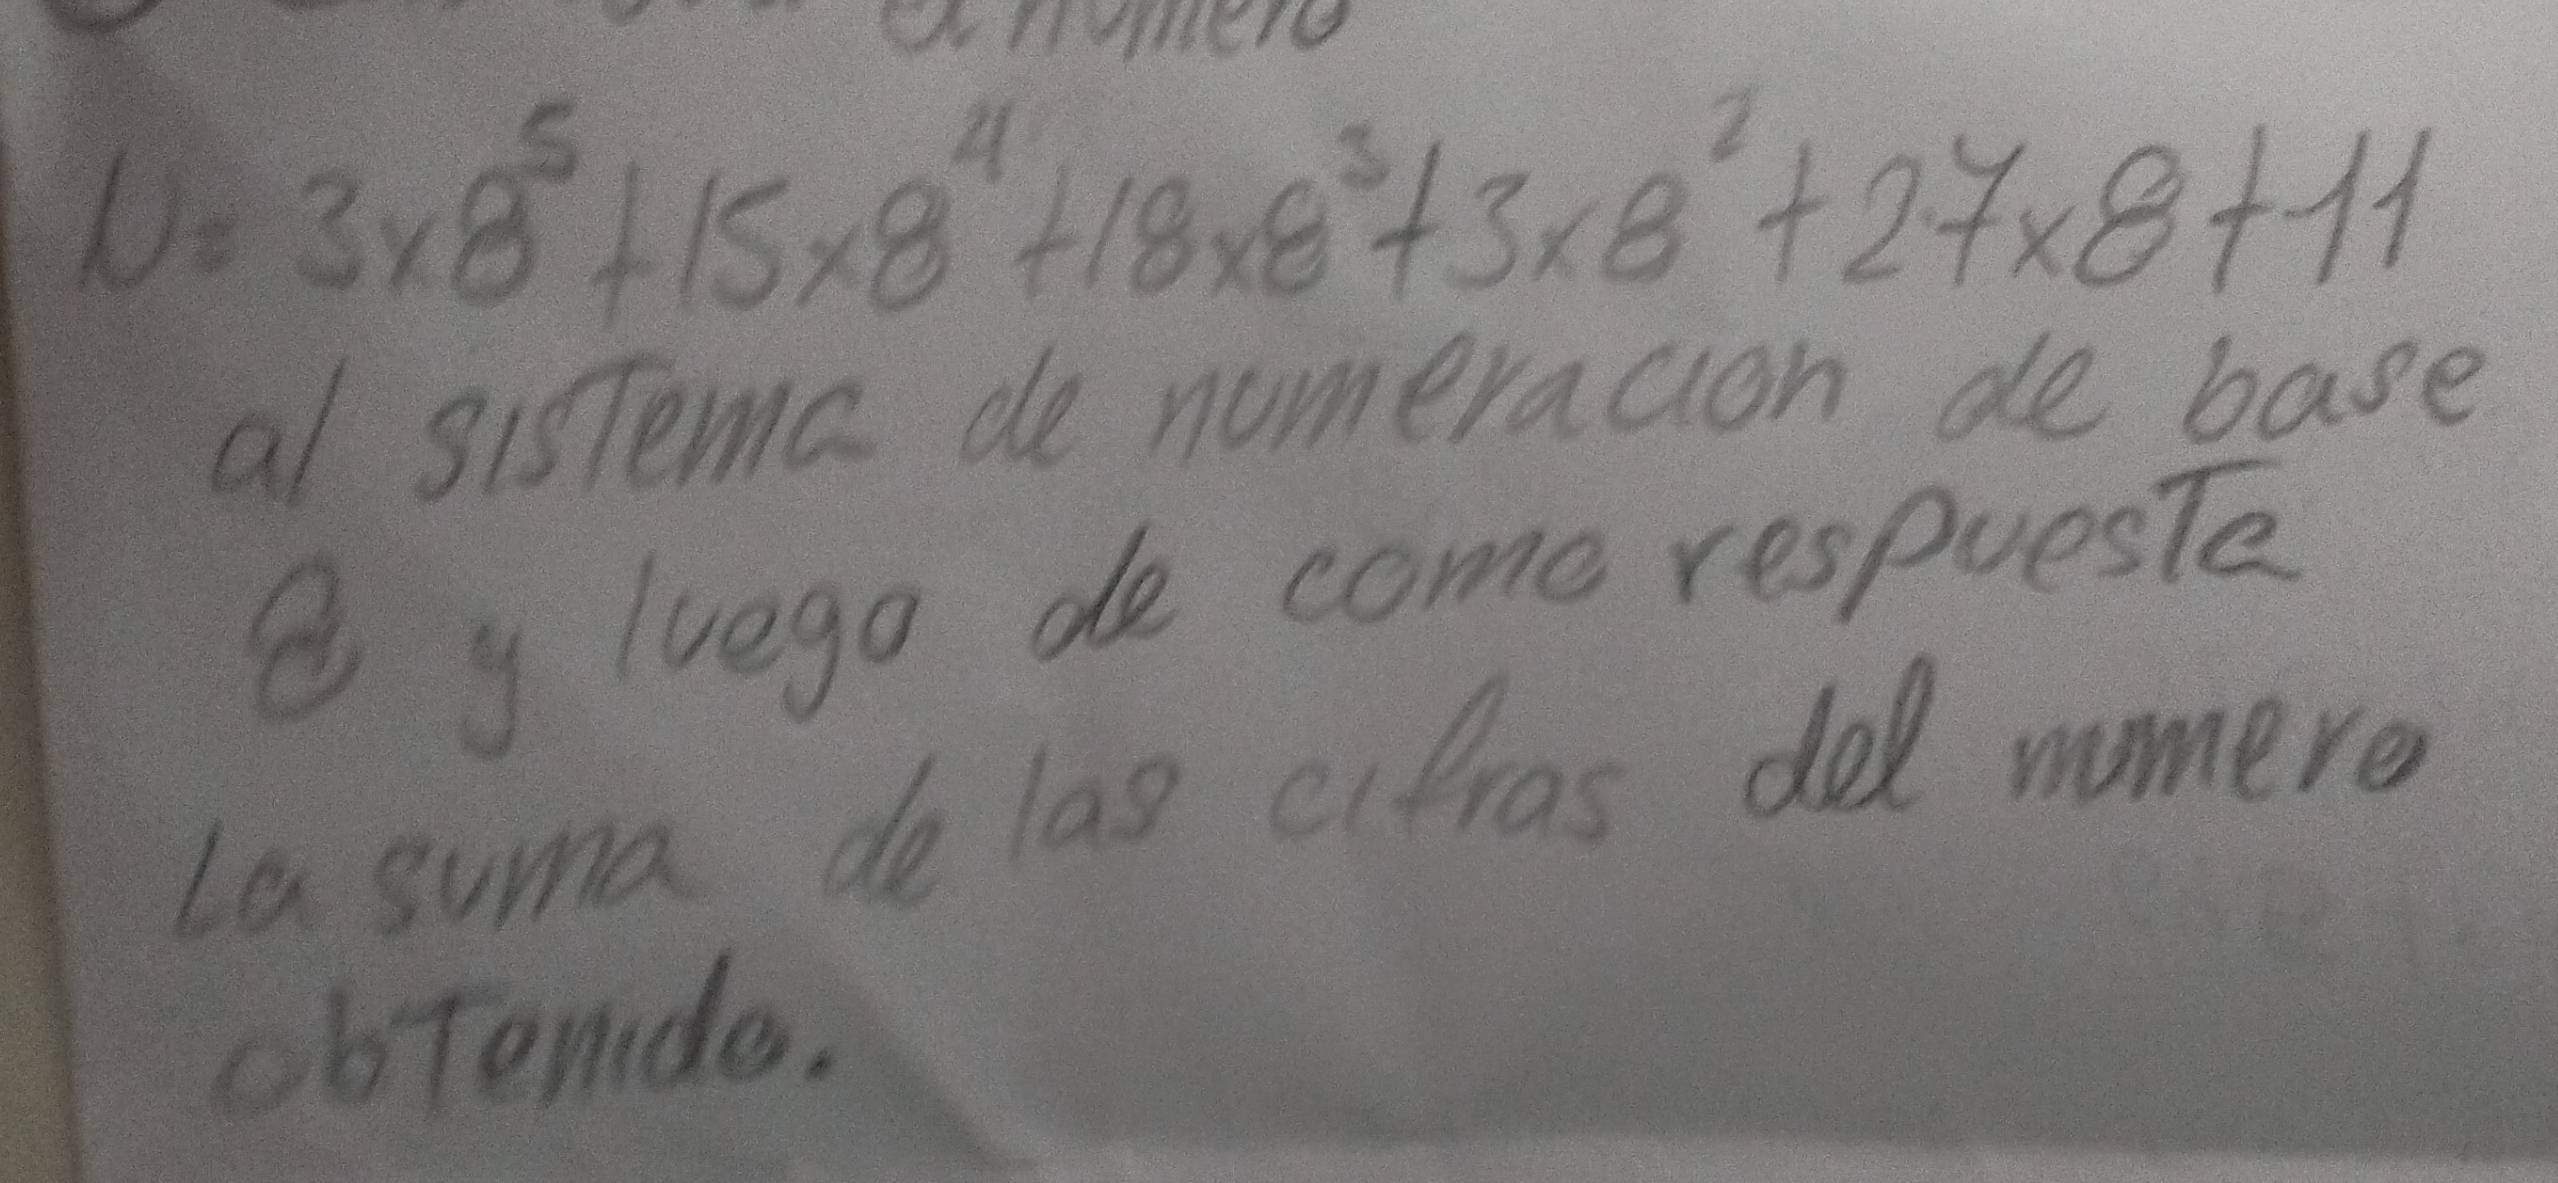 el numero
N= 3x8⁵+15x8⁴+18x8³+3x8²+27x8+11
al sistema de numeracion de base
8 y luego de como respuesta
La suma de las cifras del numero
obtenido.